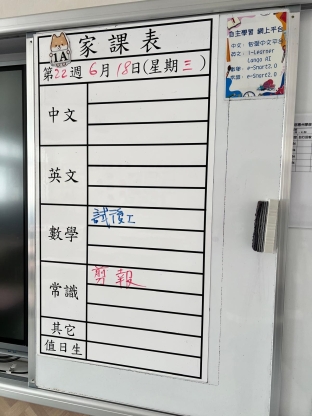 1A
家課表
第22週 6月18日(星期三)
中文
英文
數學
試後工
常識
剪報
其它
值日生
自主學習 網上平台
中文：智愛中文平台
英文：i-Learner
Lango AI
數學：e-Smart2.0
常識：e-Smart2.0